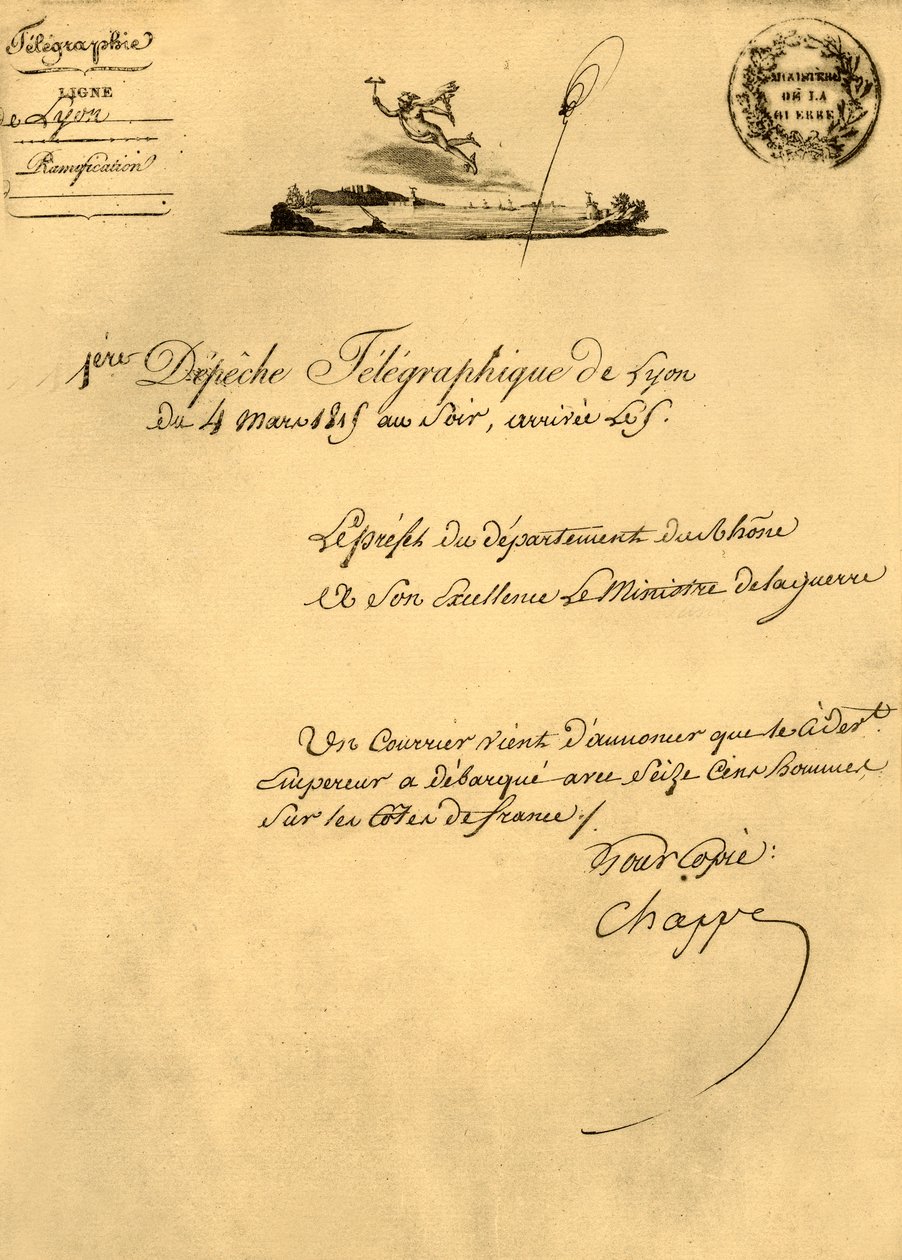 Télégraphie
LIGNE
de Lyon
Ramification
MINISTÈRE
DE LA
GUERRE
1ère Dépêche Télégraphique de Lyon
du 4 Mars 1815 au Soir, arrivée Le 5.
Le préfet du département du Rhône
A Son Excellence Le Ministre de la guerre
Un Courrier vient d'annoncer que le
Empereur a débarqué avec Seize Cens hommes,
Sur les Côtes de france ./.
Pour Copie :
Chappe